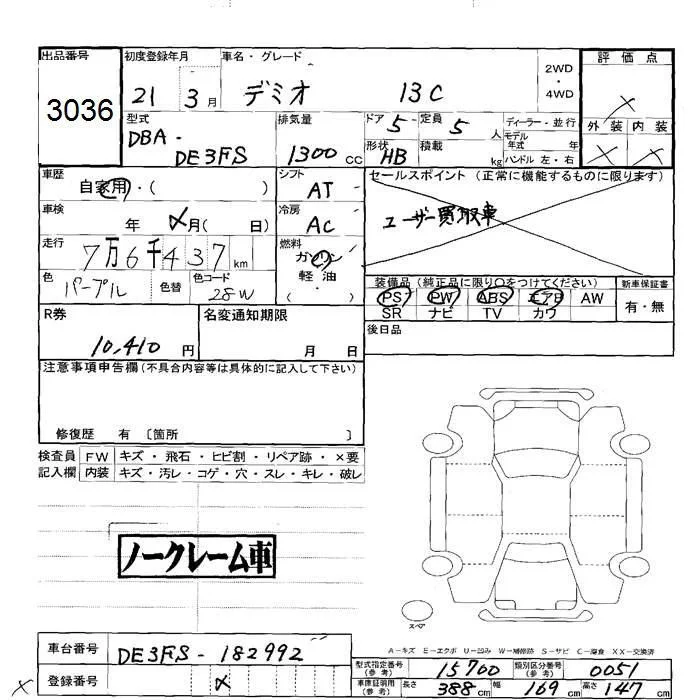 出品番号 初度登録年月 車名・グレード 評価点
3036 21 3月 デミオ 13C 2WD・4WD ×
型式 排気量 ドア 5 定員 5人 ディーラー・並行 外装 内装
DBA- DE3FS 1300cc 形状 HB 積載 kg モデル年式 年 ハンドル 左・右 × ×
車歴 シフト セールスポイント (正常に機能するものに限ります)
自家用・( ) AT
車検 冷房 ユーザー買取車
年 〆月( 日) AC
走行 燃料
7万6千437km ガソリン
色 色替 色コード 軽油 装備品 (純正品に限り〇をつけてください) 新車保証書
パープル 28W ( ) PS PW ABS エアB AW 有・無
R券 名変通知期限 SR ナビ TV カワ
10,410円 月 日 後日品
注意事項申告欄(不具合内容等は具体的に記入して下さい)
修復歴 有 〔箇所 〕
検査員 FW キズ・飛石・ヒビ割・リペア跡・×要
記入欄 内装 キズ・汚レ・コゲ・穴・スレ・キレ・破レ
ノークレーム車
スペア
A-キズ E-エクボ U-凹み W-補修跡 S-サビ C-腐食 XX-交換済
車台番号 DE3FS-182992 型式指定番号(参考) 15700 類別区分番号(参考) 0051
登録番号 〆 車庫証明用(参考) 長さ 388cm 幅 169cm 高さ 147cm
×